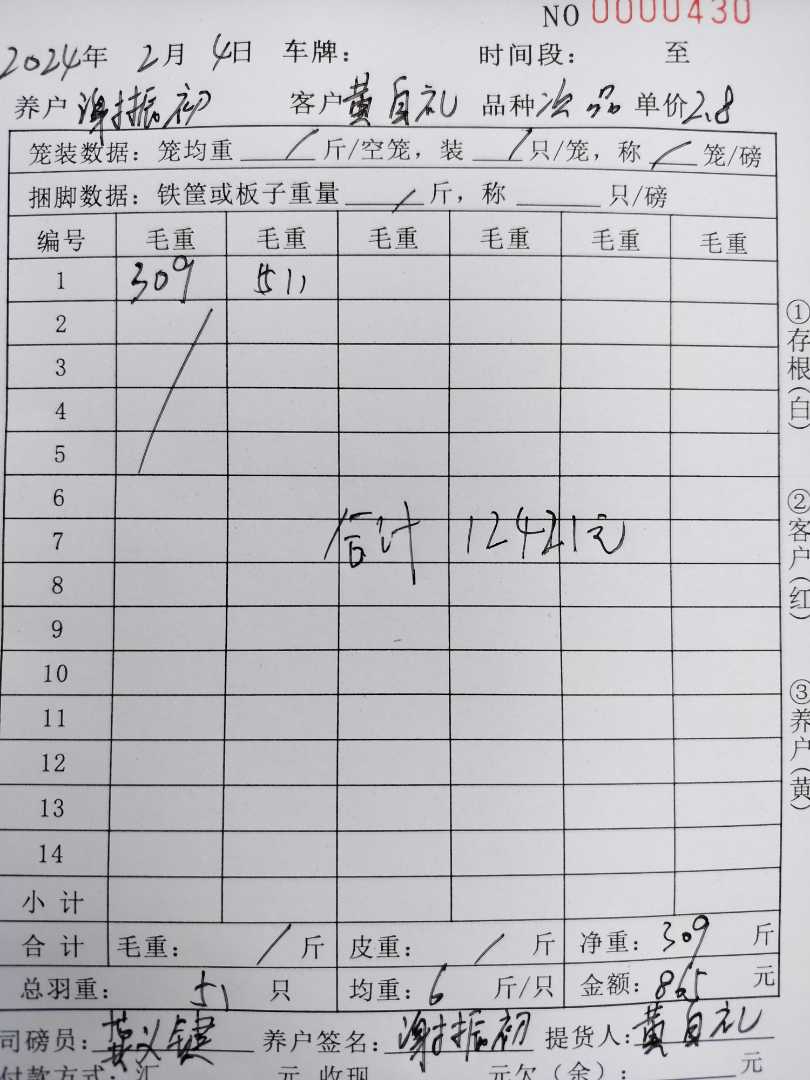 NO 0000430
2024年 2月 4日 车牌: 时间段: 至
养户 谢振初 客户 黄自礼 品种 次品 单价 2.8
笼装数据: 笼均重 / 斤/空笼, 装 / 只/笼, 称 / 笼/磅
捆脚数据: 铁筐或板子重量 / 斤, 称 只/磅
编号 毛重 毛重 毛重 毛重 毛重 毛重
1 309 511
2
3
4
5
6
7 合计 12421元
8
9
10
11
12
13
14
小计
合计 毛重: / 斤 皮重: / 斤 净重: 309 斤
总羽重: 51 只 均重: 6 斤/只 金额: 865 元
司磅员: 黄义键 养户签名: 谢振初 提货人: 黄自礼
付款方式: 汇 元 收现 元欠(余): 元
①存根(白)
②客户(红)
③养户(黄)